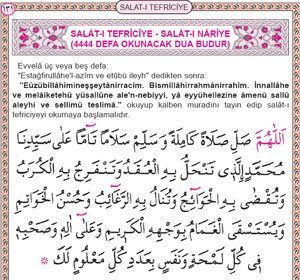 ١٣١
SALAT-I TEFRİCİYE
SALÂT-I TEFRİCİYE - SALÂT-I NÂRİYE
(4444 DEFA OKUNACAK DUA BUDUR)
Evvelâ üç veya beş defa:
"Estağfirullâhe'l-azîm ve etûbü ileyh" dedikten sonra:
"Eûzübillâhimineşşeytânirracîm. Bismillâhirrahmânirrahîm. İnnallâhe
ve melâiketehû yüsallûne ale'n-nebiyyi, yâ eyyühellezîne âmenû sallû
aleyhi ve sellimû teslîmâ." okuyup kalben muradını tayin edip salât-ı
tefriciyeyi okumaya başlamalıdır.
اَللّٰهُمَّ صَلِّ صَلَاةً كَامِلَةً وَسَلِّمْ سَلَامًا تَامًّا عَلٰى سَيِّدِنَا
مُحَمَّدٍ الَّذِى تَنْحَلُّ بِهِ الْعُقَدُ وَتَنْفَرِجُ بِهِ الْكُرَبُ
وَتُقْضٰى بِهِ الْحَوَائِجُ وَتُنَالُ بِهِ الرَّغَائِبُ وَحُسْنُ الْخَوَاتِمِ
وَيُسْتَسْقَى الْغَمَامُ بِوَجْهِهِ الْكَرِيمِ وَعَلٰى اٰلِهِ وَصَحْبِهِ
فِى كُلِّ لَمْحَةٍ وَنَفَسٍ بِعَدَدِ كُلِّ مَعْلُومٍ لَكَ